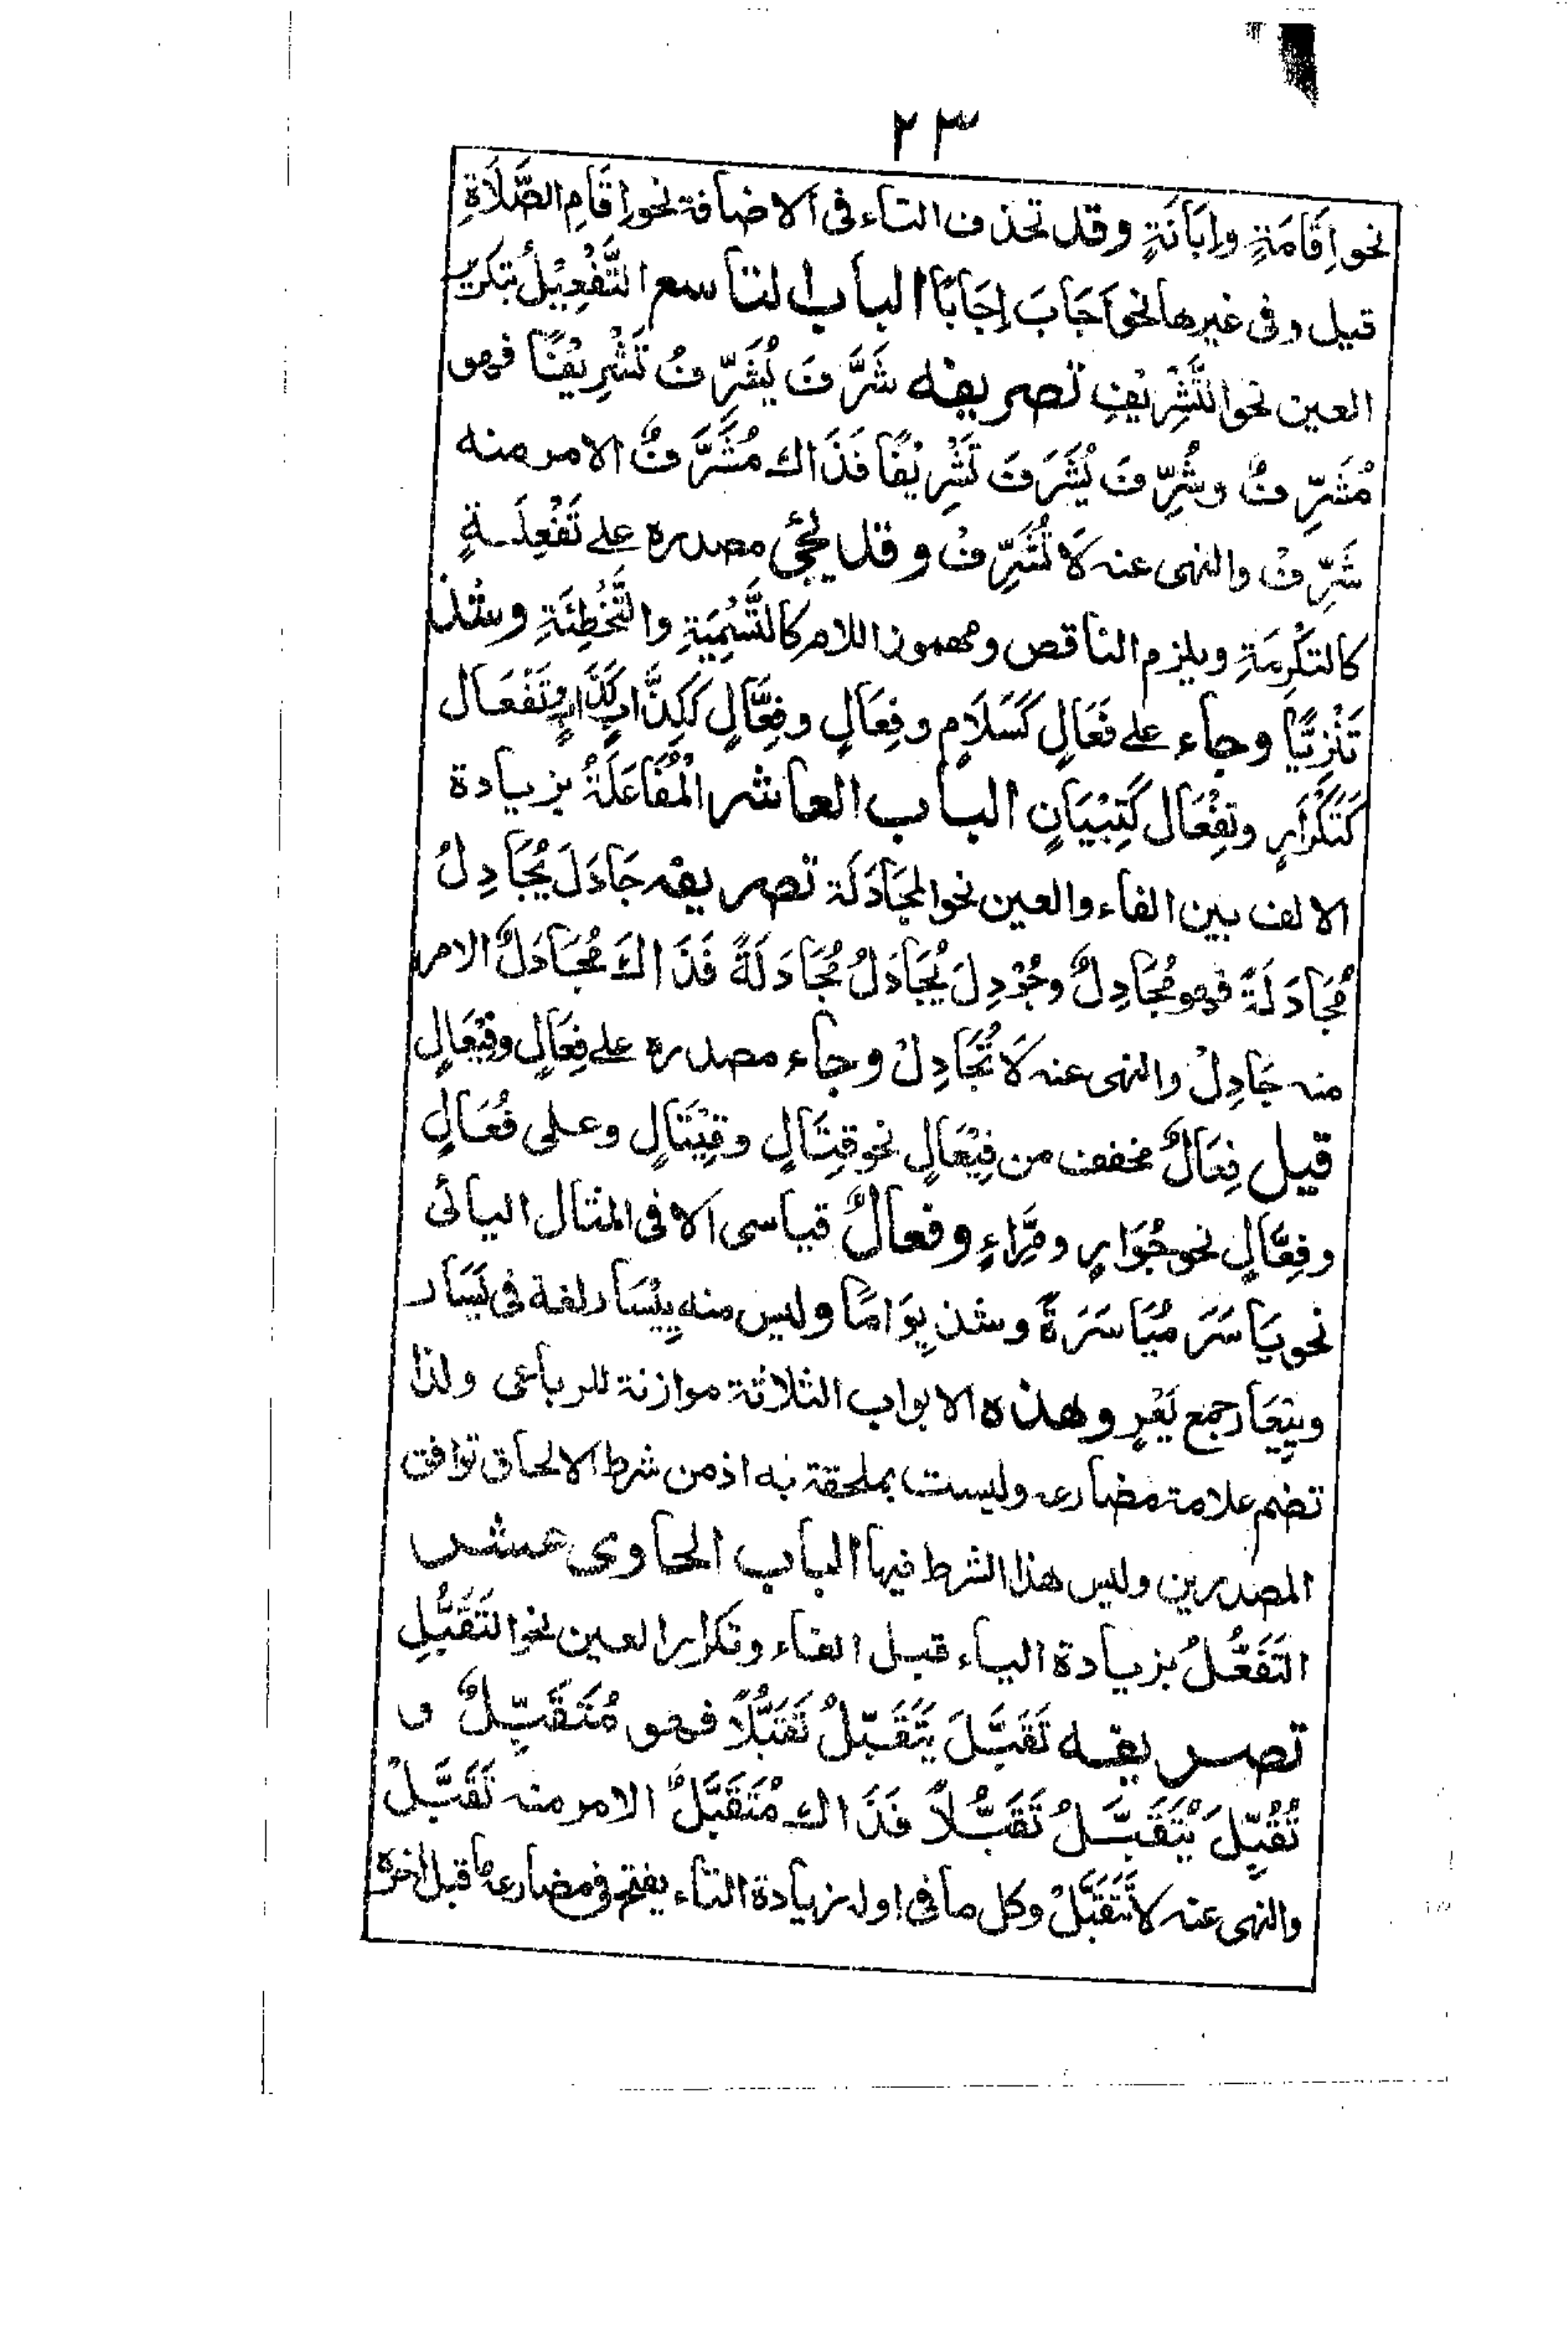 ٢٣
نحو إِقَامَةٍ وإِبَانَةٍ وقد تحذف التاء فى الاضافة نحو إِقَامِ الصَّلَاةِ
قيل وفى غيرها نحو أَجَابَ إِجَابًا الباب التاسع التَّفْعِيْلُ بتكرير
العين نحو التَّشْرِيْفِ تصريفه شَرَّفَ يُشَرِّفُ تَشْرِيْفًا فهو
مُشَرِّفٌ وشُرِّفَ يُشَرَفُ تَشْرِيْفًا فَذَاك مُشَرَّفٌ الامر منه
شَرِّفْ والنهى عنه لَا تُشَرِّفْ وقد يجئ مصدره على تَفْعِلَةٍ
كالتَكْرِمَةِ ويلزم الناقص ومهموز اللام كالتَّسْمِيَةِ والتَّخْطِئَةِ وشذ
تَنْزِيًّا وجاء على فَعَالٍ كَسَلَامٍ وفِعَالٍ وفِعَّالٍ كَكِذَّابٍ كِذَابٍ وتَفْعَال
كَتَكْرَارٍ وتِفْعَال كَتِبْيَانٍ الباب العاشر الْمُفَاعَلَةُ بزيادة
الالف بين الفاء والعين نحو المُجَادَلَة تصريفه جَادَلَ يُجَادِلُ
مُجَادَلَةً فهو مُجَادِلٌ وجُوْدِلَ يُجَادَلُ مُجَادَلَةً فَذَاكَ مُجَادَلٌ الامر
منه جَادِلْ والنهى عنه لَا تُجَادِلْ وجاء مصدره على فِعَالٍ وفِيْعَالٍ
قيل فِعَالٌ مخفف من فِيْعَالٍ نحو قِتَالٍ وقِيْتَالٍ وعلى فُعَالٍ
وفِعَّالٍ نحو جُوَارٍ ومِرَّاءٍ وفعالٌ قياسى الا فى المثال اليائى
نحو يَاسَرَ مُيَاسَرَةً وشذ يِوَامًا وليس منه يِيْسَار لغة فى يَسَار
ويِيْعَار جمع يَعْرٍ وهذه الابواب الثلاثة موازنة للرباعى ولذا
تضم علامة مضارعه وليست بملحقة به اذ من شرط الالحاق توافق
المصدرين وليس هذا الشرط فيها الباب الحاوى عشر
التَفَعُّلُ بزيادة الياء قبل الفاء وتكرار العين نحو التَقَبُّلِ
تصريفه تَقَبَّلَ يَتَقَبَّلُ تَقَبُّلًا فهو مُتَقَبِّلٌ و
تُقُبِّلَ يُتَقَبَّلُ تَقَبُّلًا فَذَاك مُتَقَبَّلٌ الامر منه تَقَبَّلْ
والنهى عنه لَا تَتَقَبَّلْ وكل ما فى اوله زيادة التاء يفتح فى مضارعه ما قبل اخره